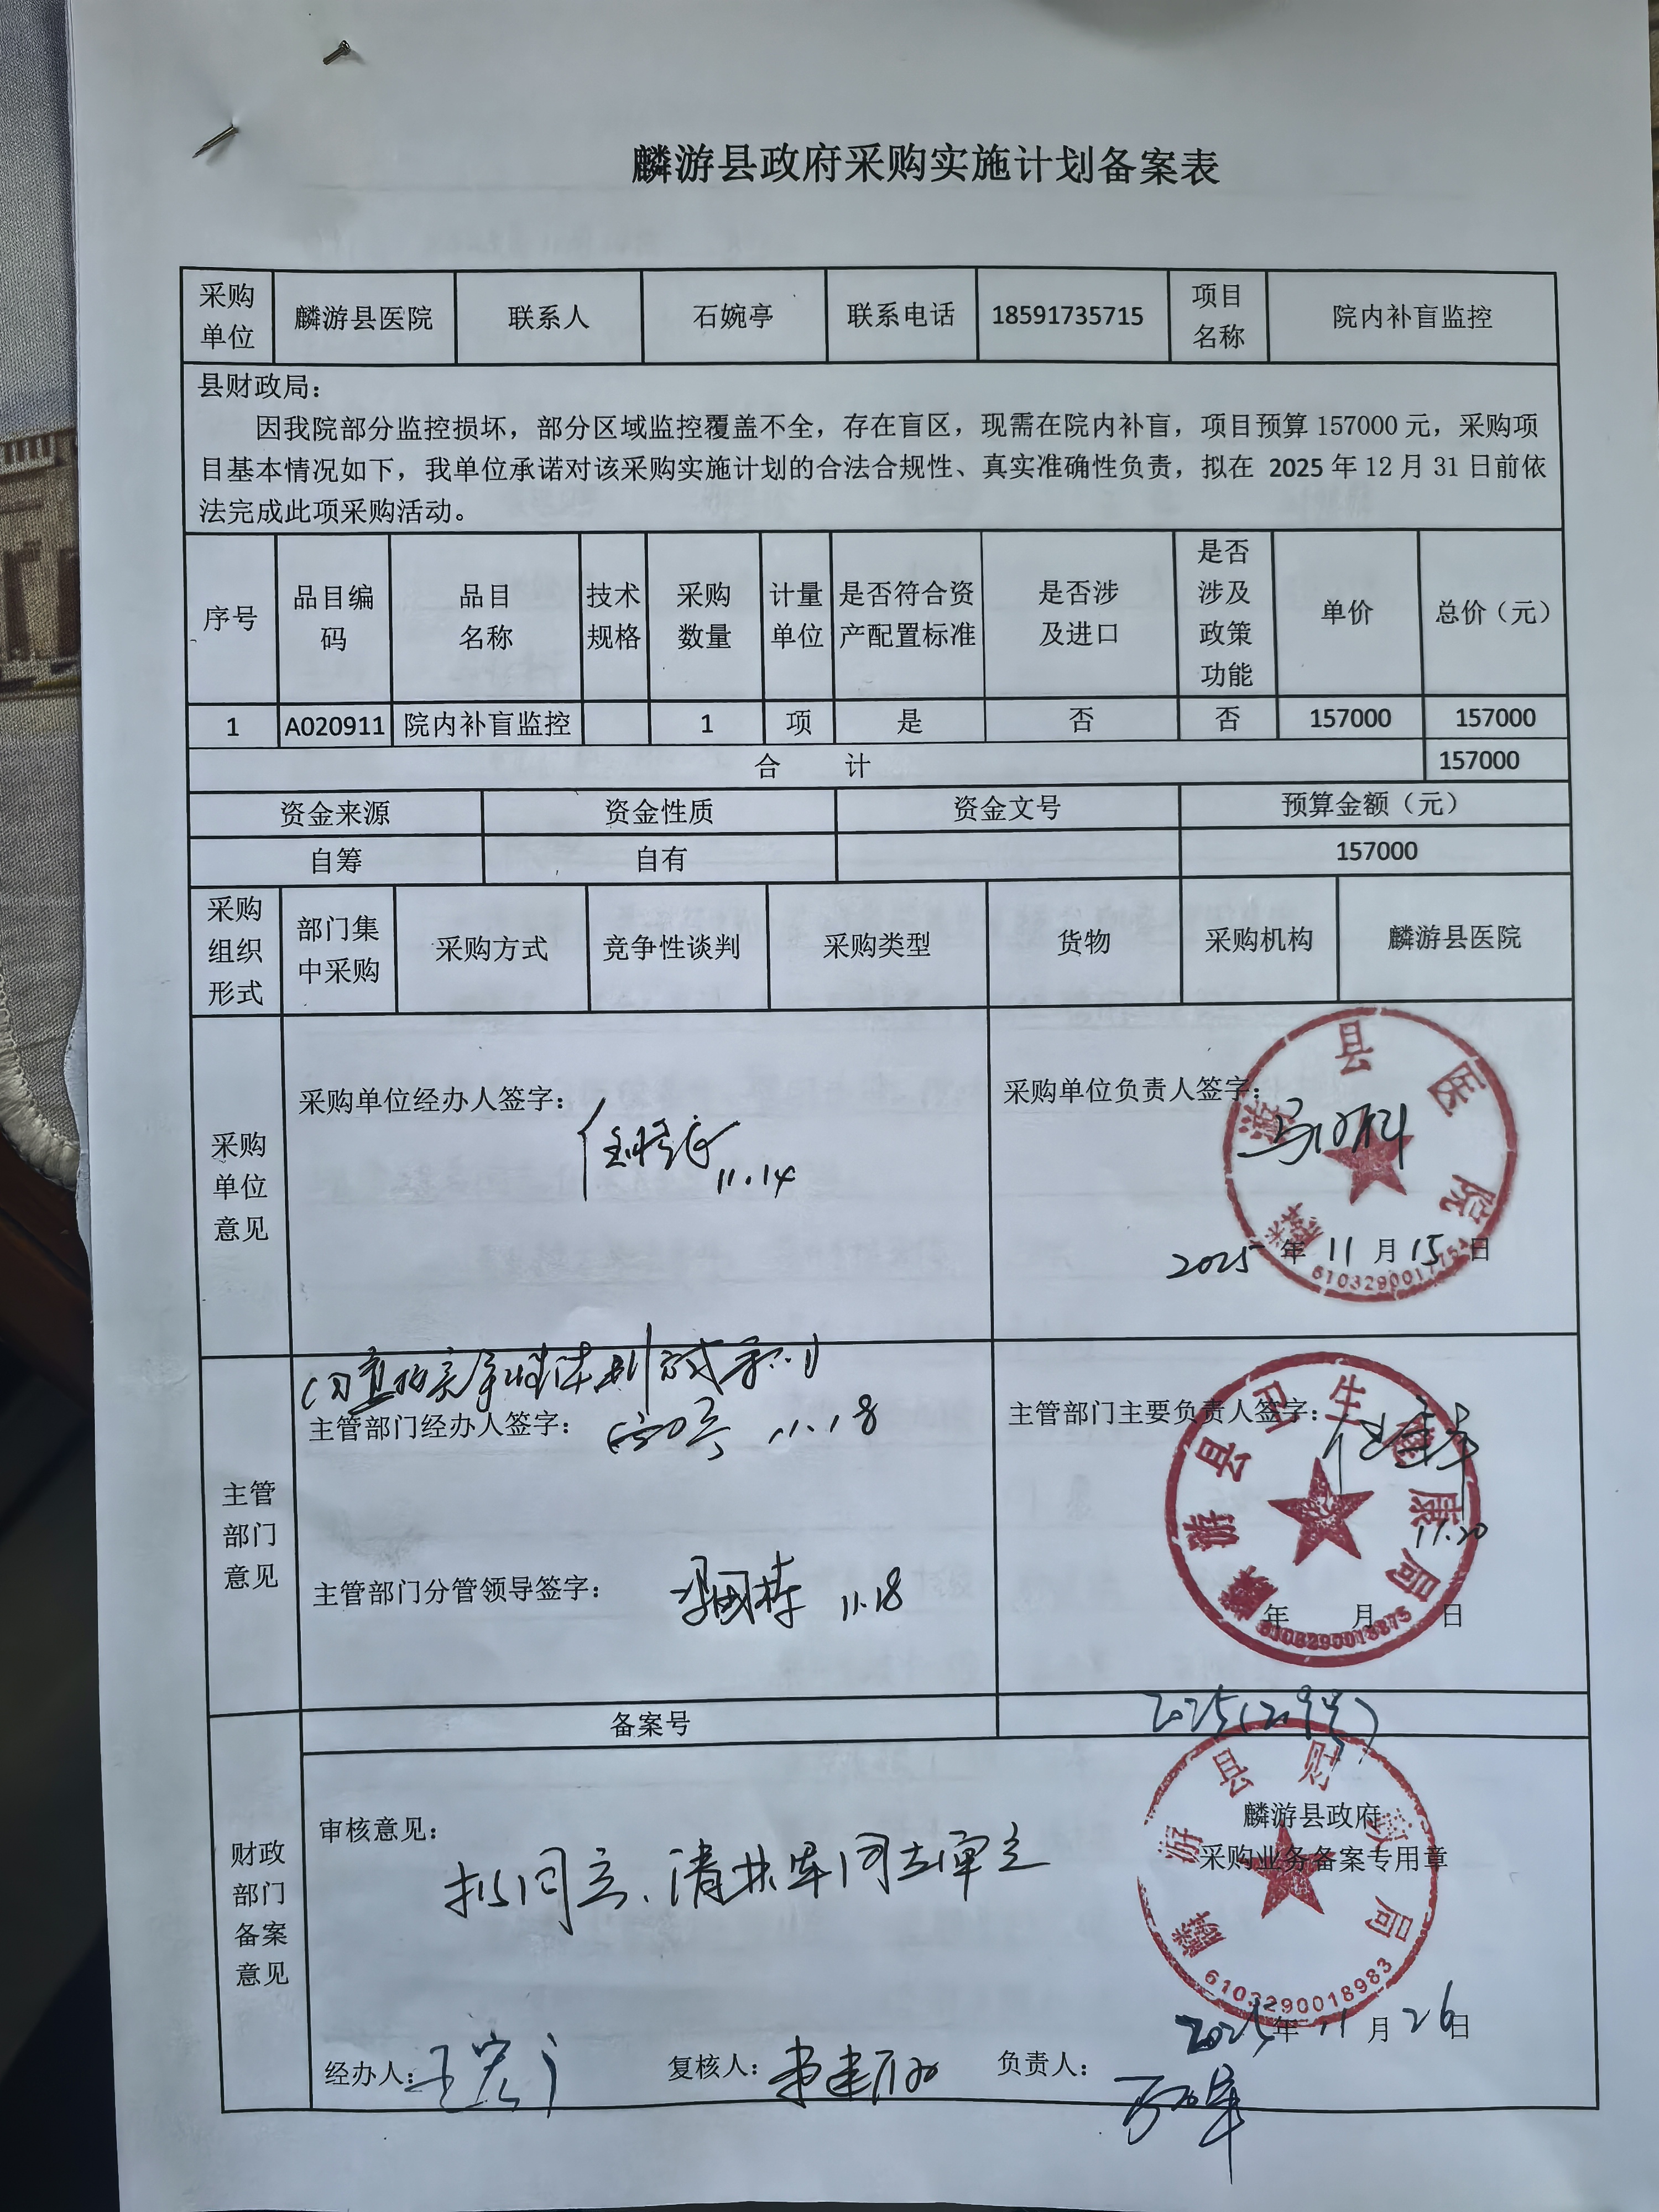 麟游县政府采购实施计划备案表
采购单位 麟游县医院 联系人 石婉亭 联系电话 18591735715 项目名称 院内补盲监控
县财政局：
因我院部分监控损坏，部分区域监控覆盖不全，存在盲区，现需在院内补盲，项目预算157000元，采购项
目基本情况如下，我单位承诺对该采购实施计划的合法合规性、真实准确性负责，拟在 2025年12月31日前依
法完成此项采购活动。
序号 品目编码 品目名称 技术规格 采购数量 计量单位 是否符合资产配置标准 是否涉及进口 是否涉及政策功能 单价 总价（元）
1 A020911 院内补盲监控 1 项 是 否 否 157000 157000
合 计 157000
资金来源 资金性质 资金文号 预算金额（元）
自筹 自有 157000
采购组织形式 部门集中采购 采购方式 竞争性谈判 采购类型 货物 采购机构 麟游县医院
采购单位意见
采购单位经办人签字： 11.14
采购单位负责人签字：
麟游县医院
2025年11月15日
主管部门意见
主管部门经办人签字： 11.18
主管部门分管领导签字： 11.18
主管部门主要负责人签字：
麟游县卫生健康局
11.20
年 月 日
财政部门备案意见
备案号
审核意见：
拟同意、请 同志审定
麟游县财政局
麟游县政府
采购业务备案专用章
6103290018983
2025年11月26日
经办人： 复核人： 负责人：